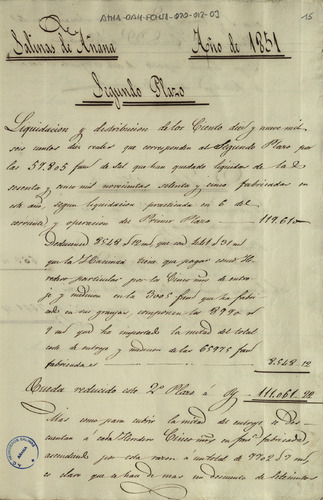 AMA-OAH-FCHSA-020-012-03
15
Salinas de Añana Año de 1851
Segundo Plazo
Liquidacion y distribucion de los Ciento diez y nueve mil
seis cientos diez reales que corresponden al Segundo Plazo por
las 59.805 fan.s de Sal que han quedado liquidas de las
sesenta y cinco mil novecientas setenta y cinco fabricadas en
este año, segun liquidacion practicada en 6 del
corriente y operacion del Primer Plazo 119.610
Deducimos 8548 12 m.s que con 241
que la Hacienda tiene que pagar como He-
redero particular por los Cinco m.s de entro-
je y medicion en la 3005 fan.s que ha fabri-
cado en sus granjas, componen los 8790
9 m.s que ha importado la mitad del total
coste de entroje y medicion de las 65975 fan.s
fabricadas 8.548 12
Queda reducido este 2.º Plazo á 111.061 22
Mas como para cubrir la mitad de entroje se des-
cuentan á cada Heredero Cinco m.s en fan.a fabricada,
ascendiendo por esta razon á un total de 7702
es claro que se han de mas un descuento de Setecientos